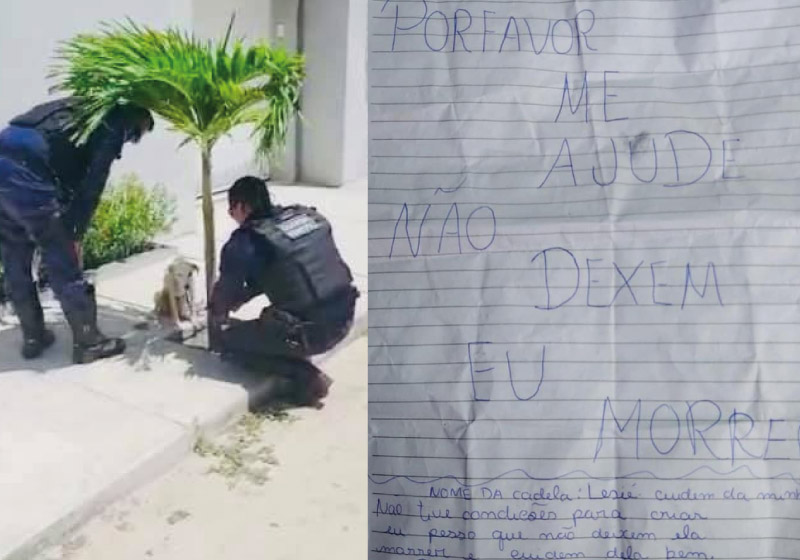 PORFAVOR
ME
AJUDE
NÃO
DEXEM
EU
MORRER
NOME DA cadela: Lesié cuidem da minh
Não tive condições para criar
eu pesso que não deixem ela
morrer e cuidem dela bem